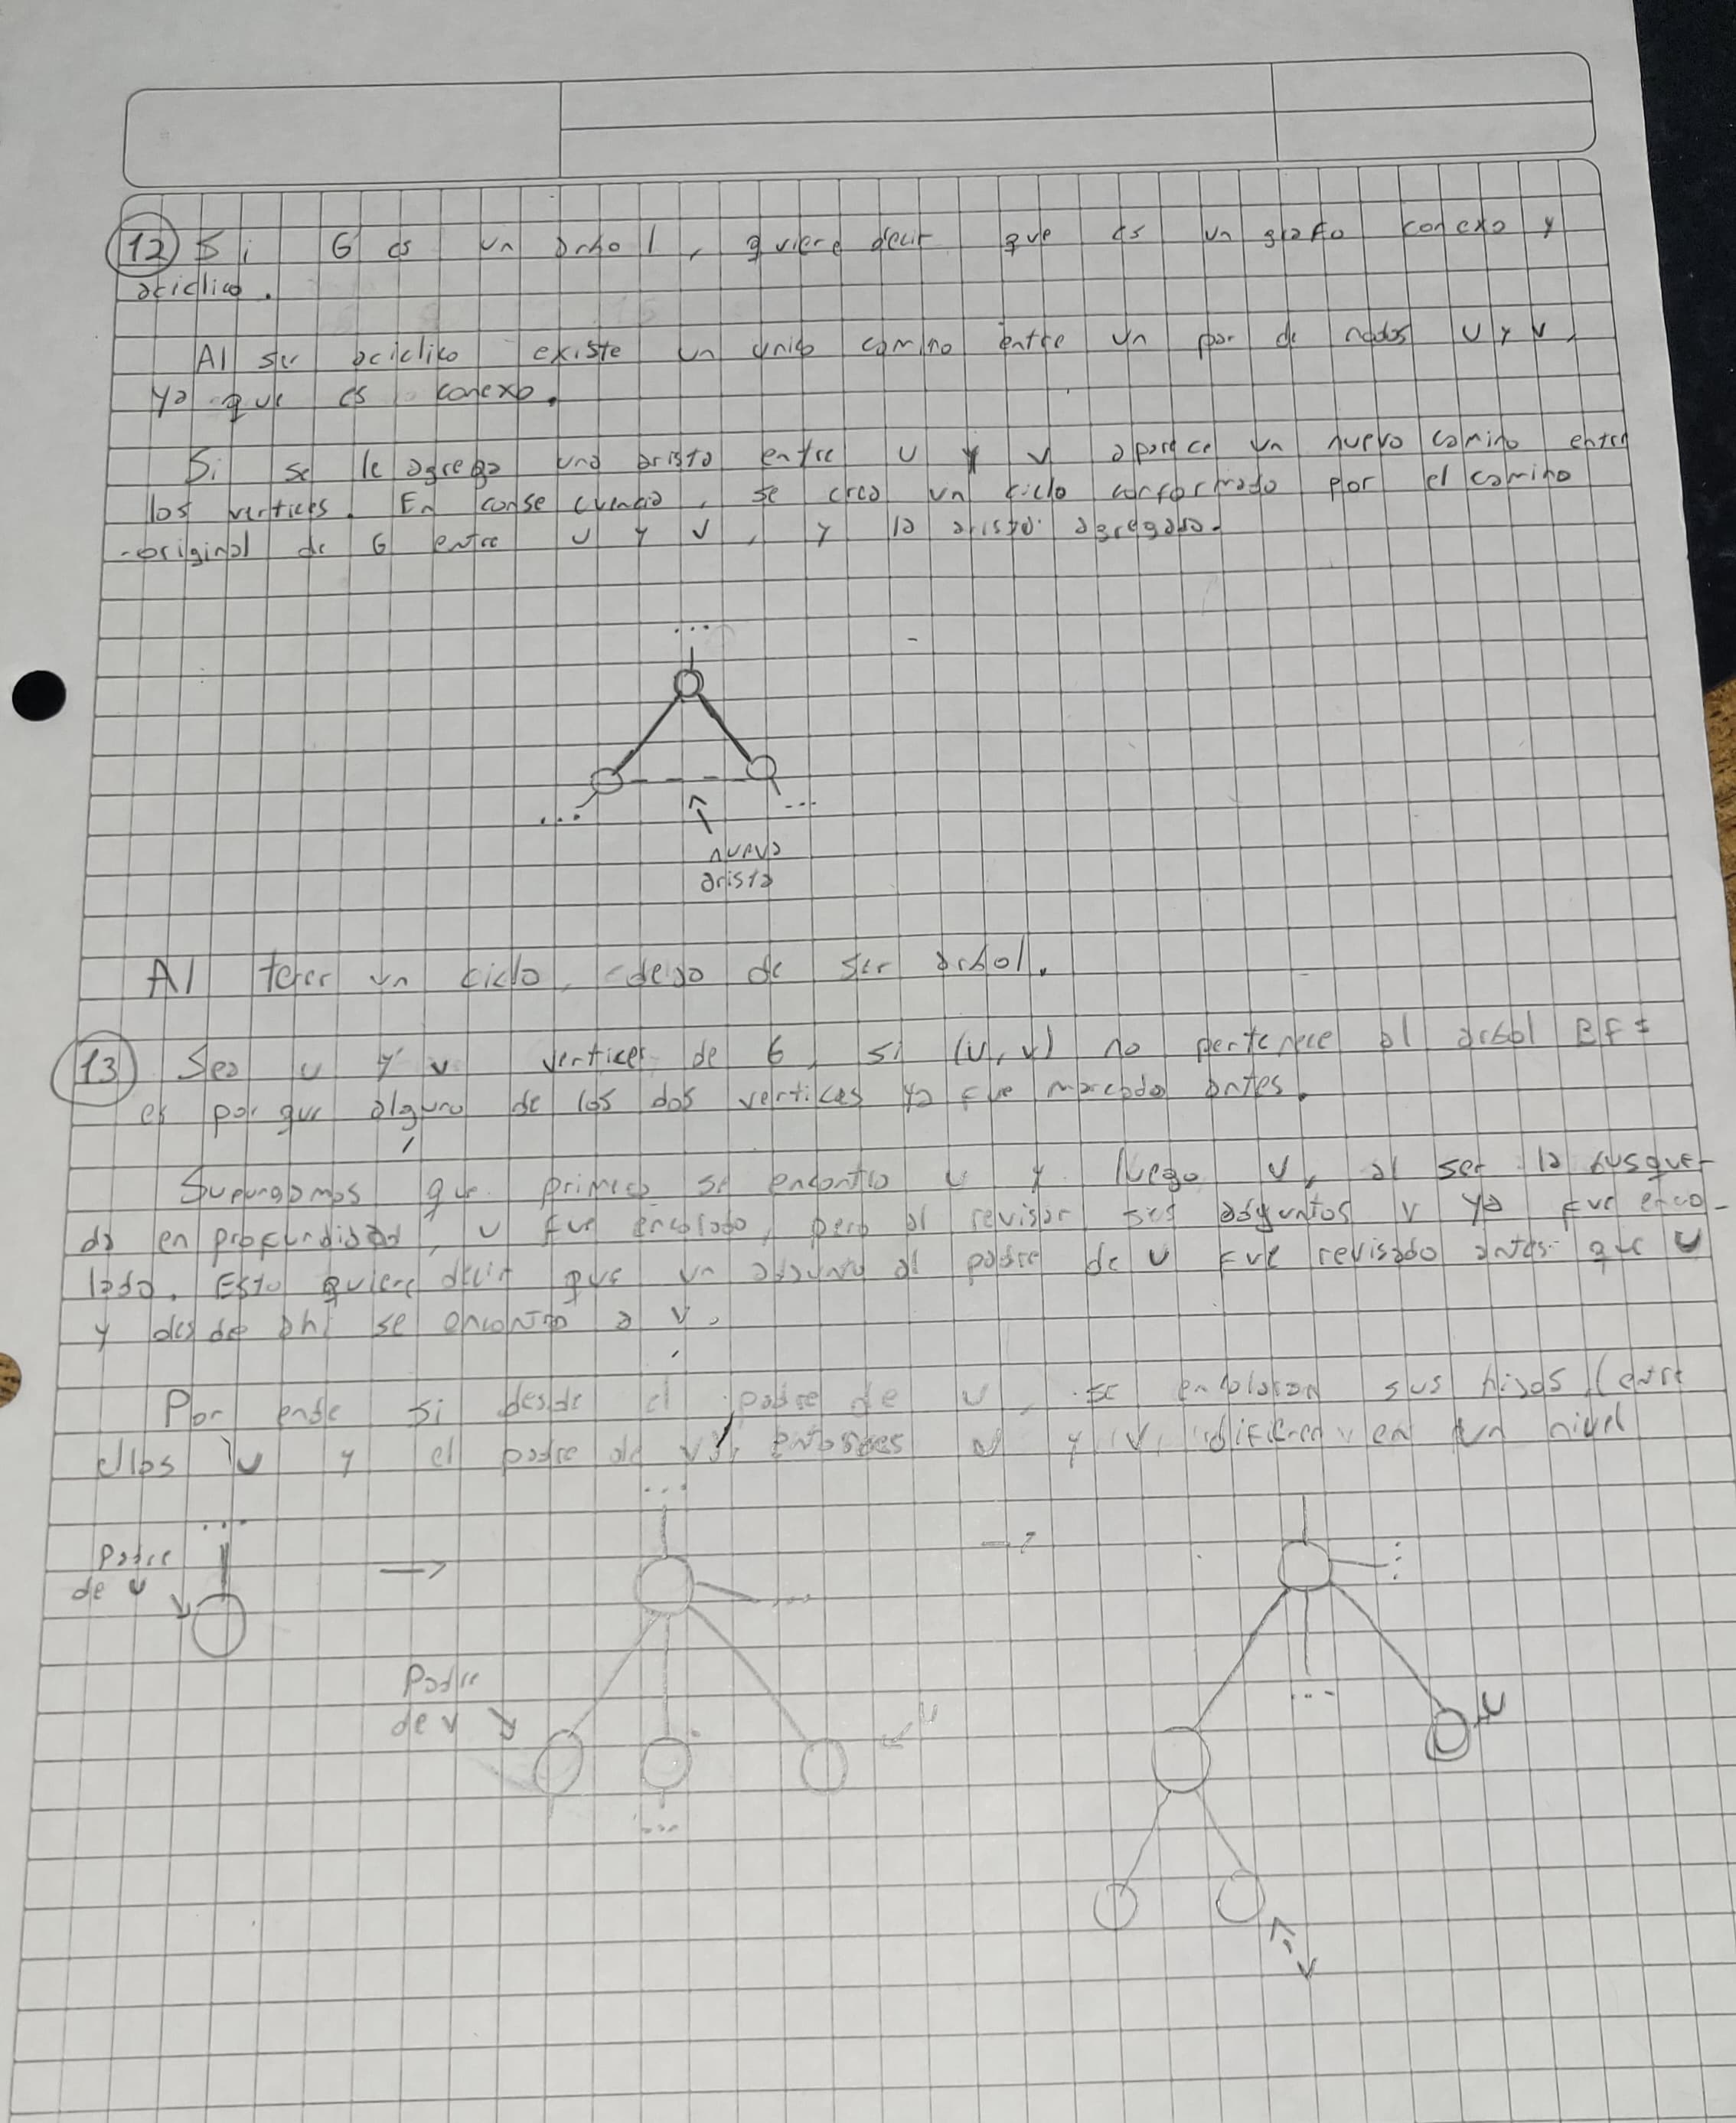 12 Si G es un arbol, quiere decir que es un grafo conexo y
aciclico.
Al ser aciclico existe un unico camino entre un par de nodos u y v,
ya que es conexo.
Si se le agrega una arista entre u y v aparece un nuevo camino entre
los vertices. En consecuencia, se crea un ciclo conformado por el camino
original de G entre u y v, y la arista agregada.
...
... ...
nueva
arista
Al tener un ciclo, dejo de ser arbol.
13 Sea u y v vertices de G, si (u, v) no pertenece al arbol BFS
es por que alguno de los dos vertices ya fue marcado antes.
Supongamos que primero se encontro u y luego v, al ser la busque-
da en profundidad, u fue encolado, pero al revisar sus adyuntos v ya fue enco-
lado. Esto quiere decir que un adyunto al padre de u fue revisado antes que u
y desde ahi se encontro a v.
Por ende si desde el padre de u, se encolaron sus hijos (entre
ellos u y el padre de v), entonces u y v difieren en un nivel
... ...
Padre
de u → → ...
Padre
de v u ... u
...
v